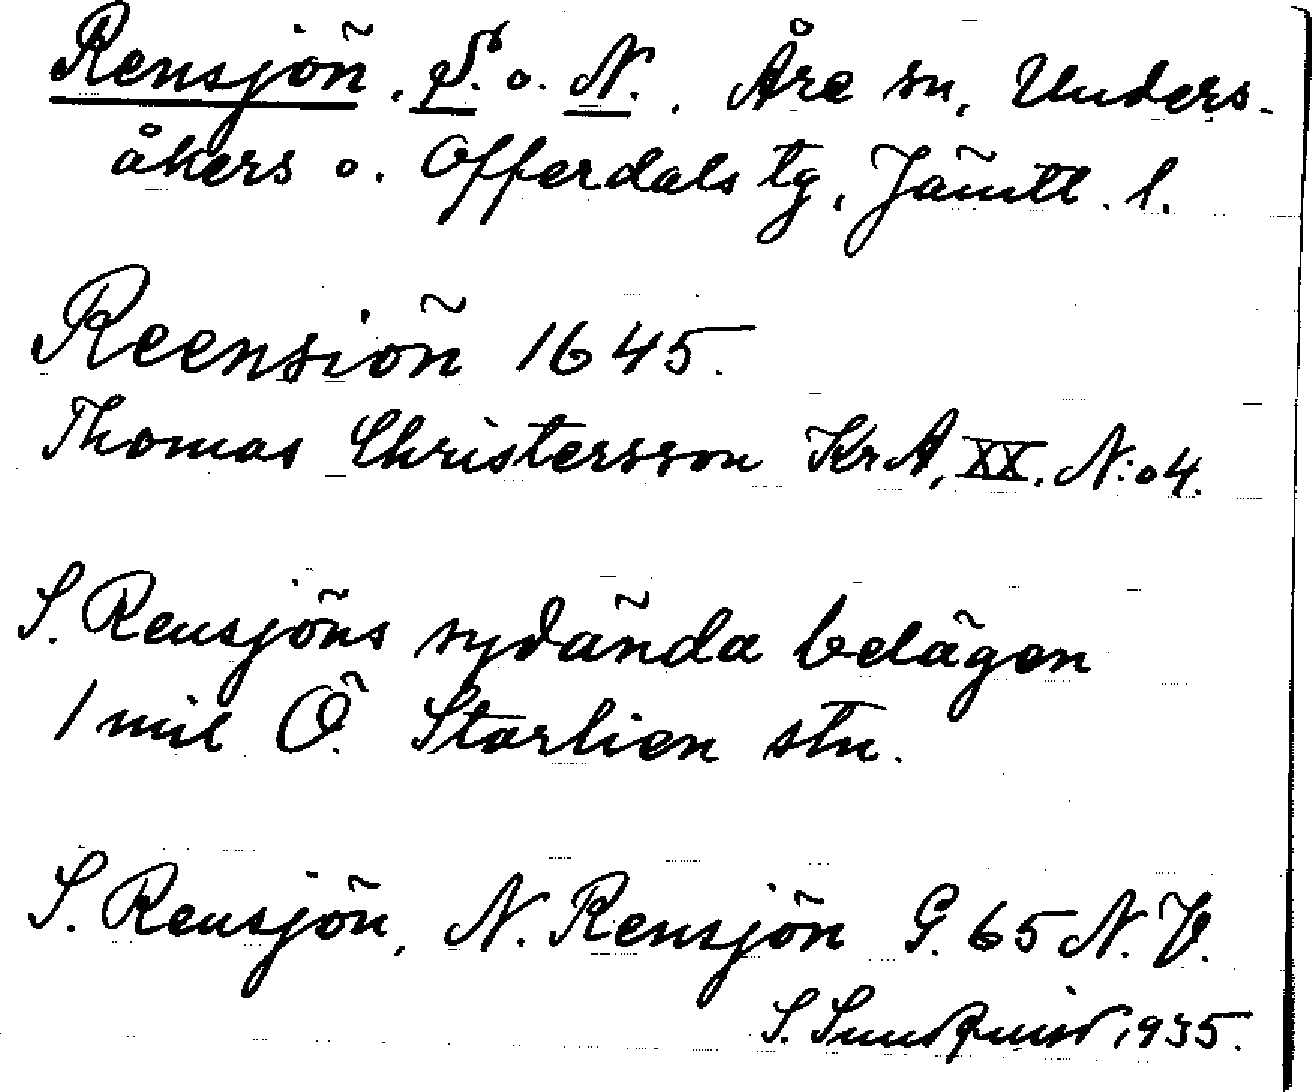 Rensjön, S. o. N., Åre sn, Unders-
åkers o. Offerdals tg, Jämtl. l.
Reensiön 1645.
Thomas Christersson KrA, XX. N:o 4.
S. Rensjöns sydända belägen
1 mil Ö. Storlien stn.
S. Rensjön, N. Rensjön G. 65 N. V.
S. Sundquist 1935.